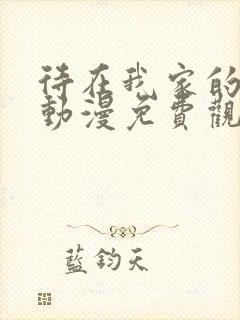 待在我家的
動漫免費觀
藍鈞天